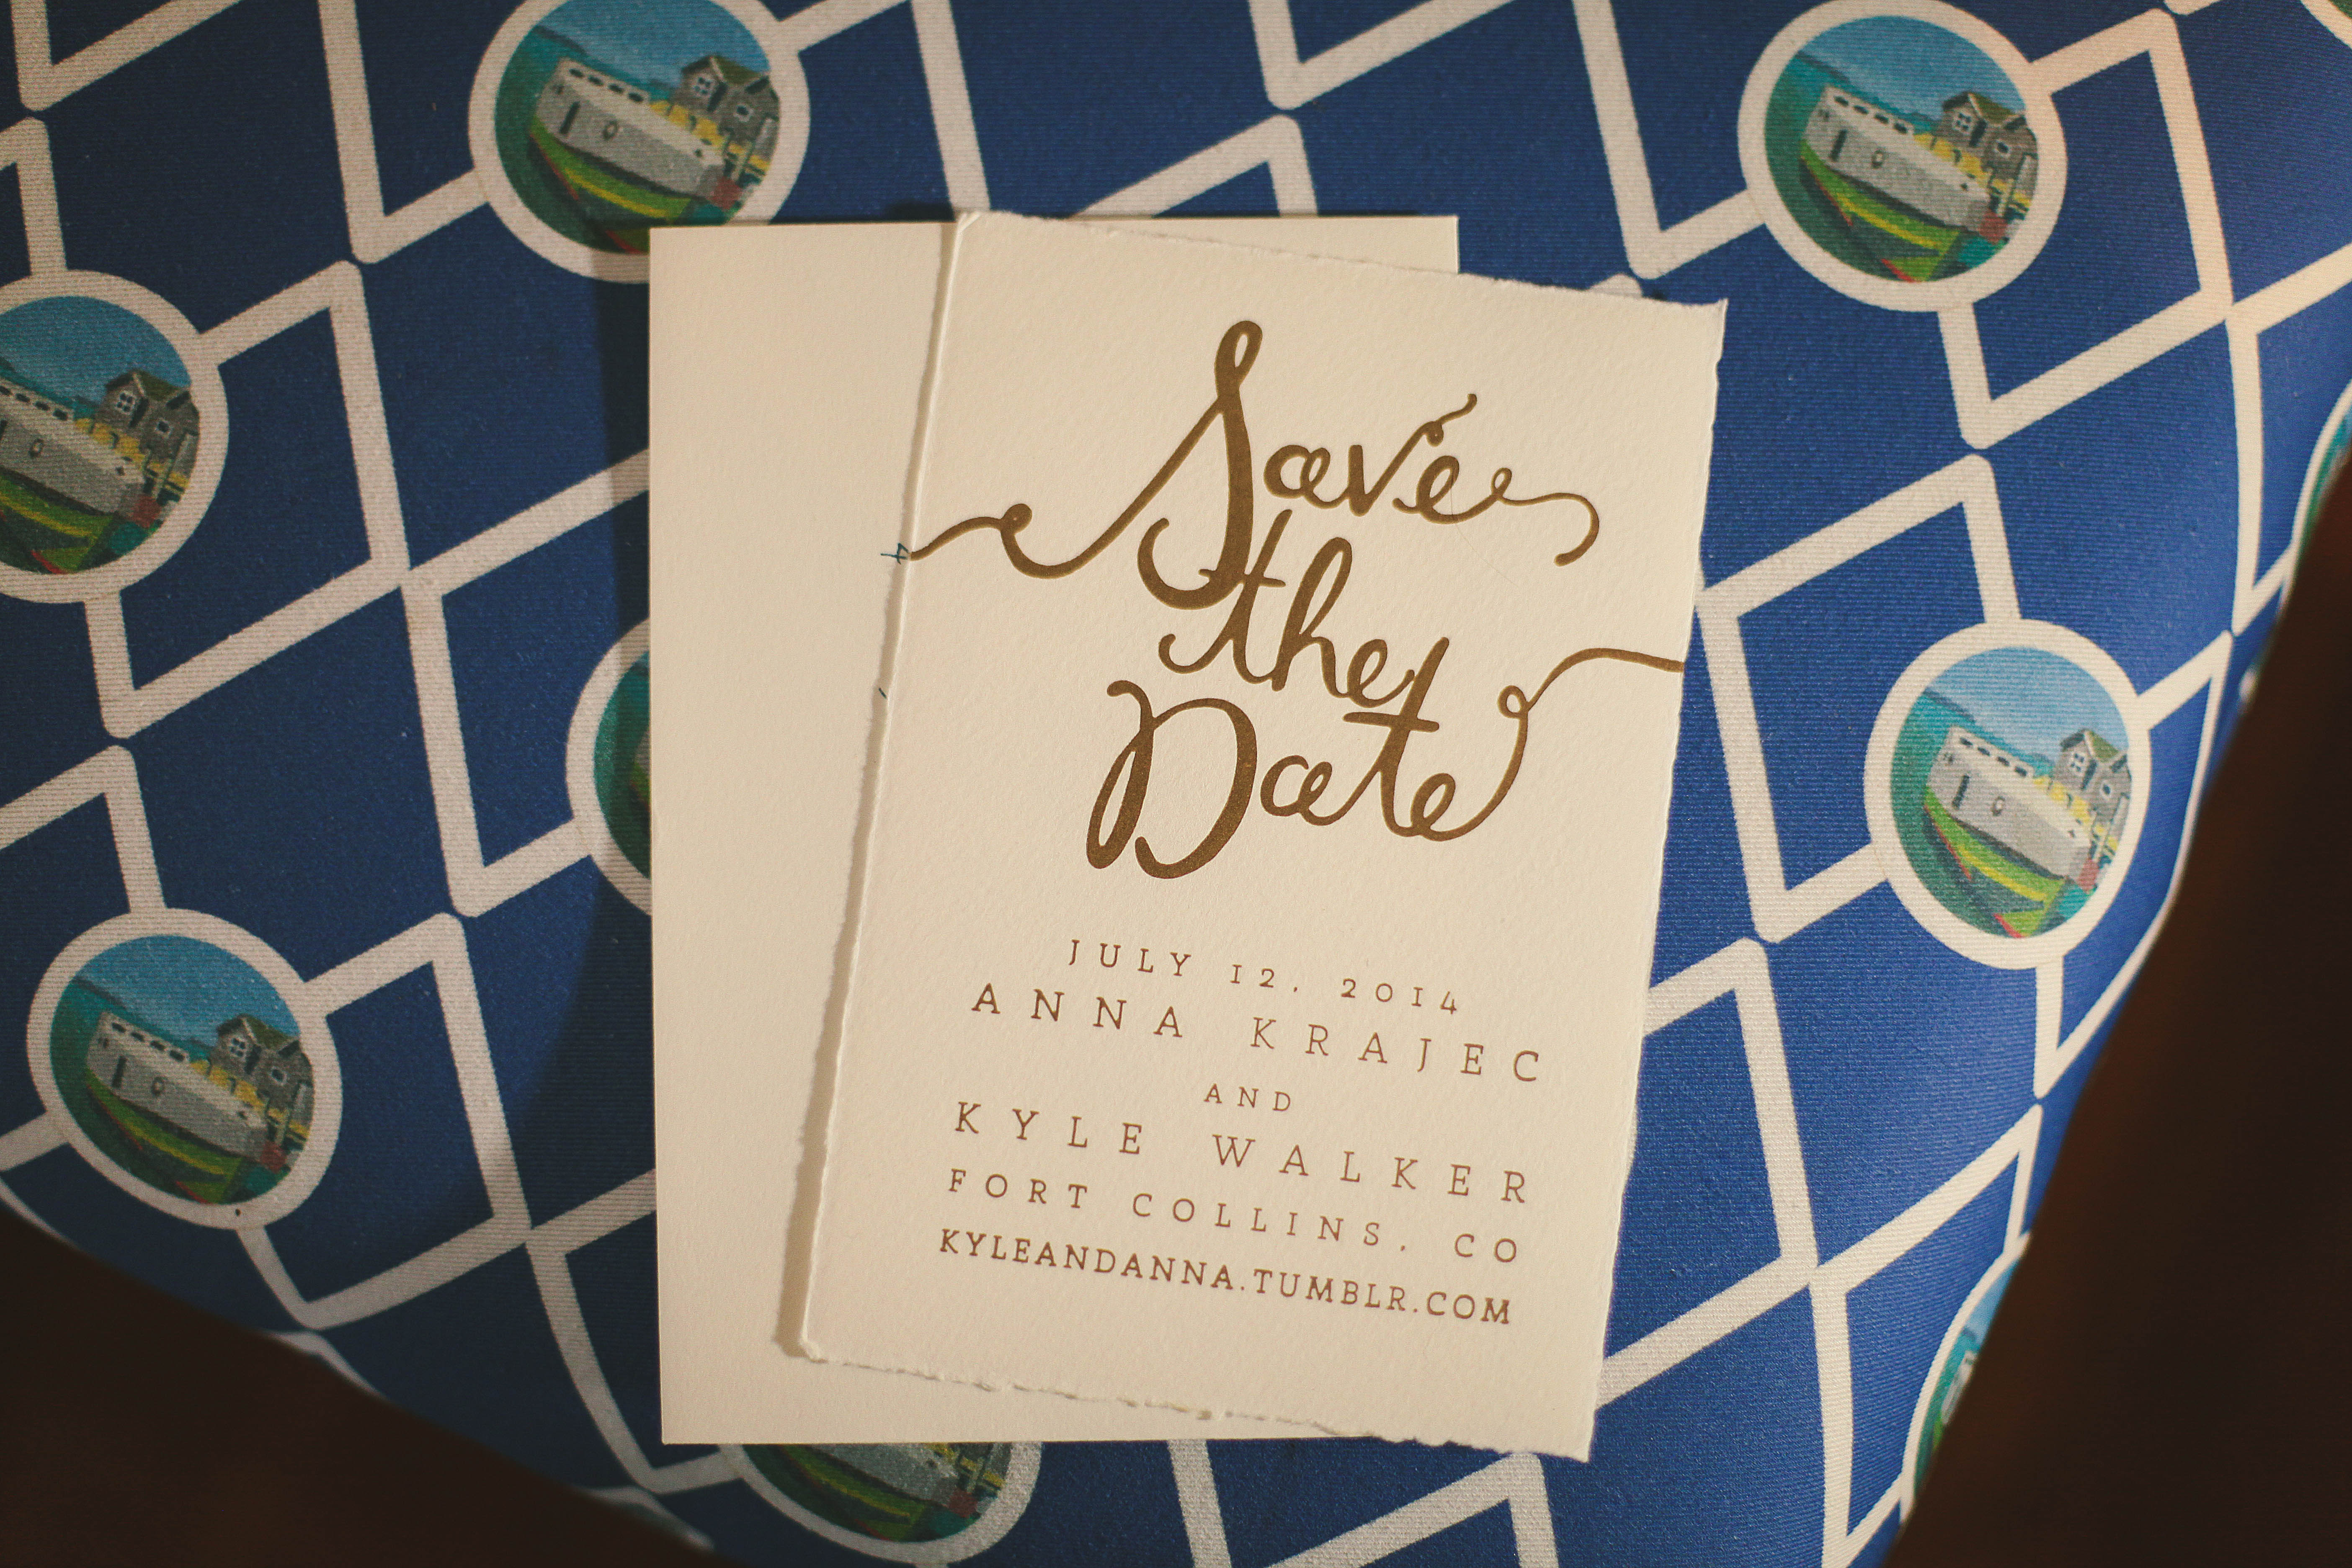 Save
the
Date
JULY 12, 2014
ANNA KRAJEC
AND
KYLE WALKER
FORT COLLINS, CO
KYLEANDANNA.TUMBLR.COM